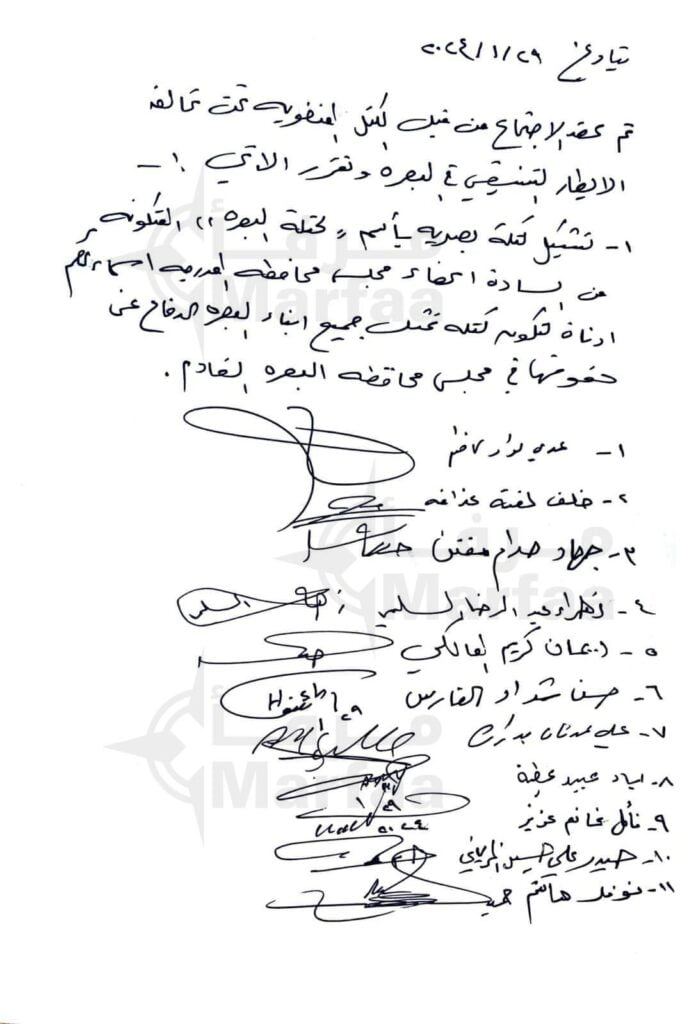 بتاريخ ٢٠٢٤/١/٢٩
تم عقد الاجتماع من قبل الكتل المنضويه تحت تحالف
الاطار التنسيقي في البصره وتقرر الاتي :-
١- تشكيل كتلة بصريه بأسم (( كتلة البصره )) المتكونه
من السادة اعضاء مجلس محافظه المدرجه اسماءهم
ادناة لتكون كتله تمثل جميع ابناء البصره الدفاع عن
حقوقها في مجلس محافظه البصره القادم .
١- عدي عواد كاظم
٢- خلف لفتة
٣- جهاد صدام مفتن
٤- زهراء عبد الرضا السلمي
السلمي
٥- ايمان كريم المالكي
٦- حسن شداد الفارس
٧- علي عدنان
٨- اياد عبيد عطية
٩- نائل غانم عزيز
١٠- حيدر علي حسين
١١- نوفل هاشم حميد
مرفأ
Marfaa
مرفأ
Marfaa
مرفأ
Marfaa